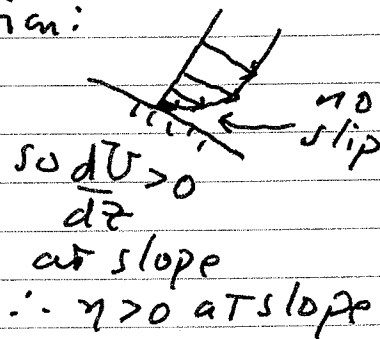 no
slip
so dU/dz > 0
at slope
∴ η > 0 at slope